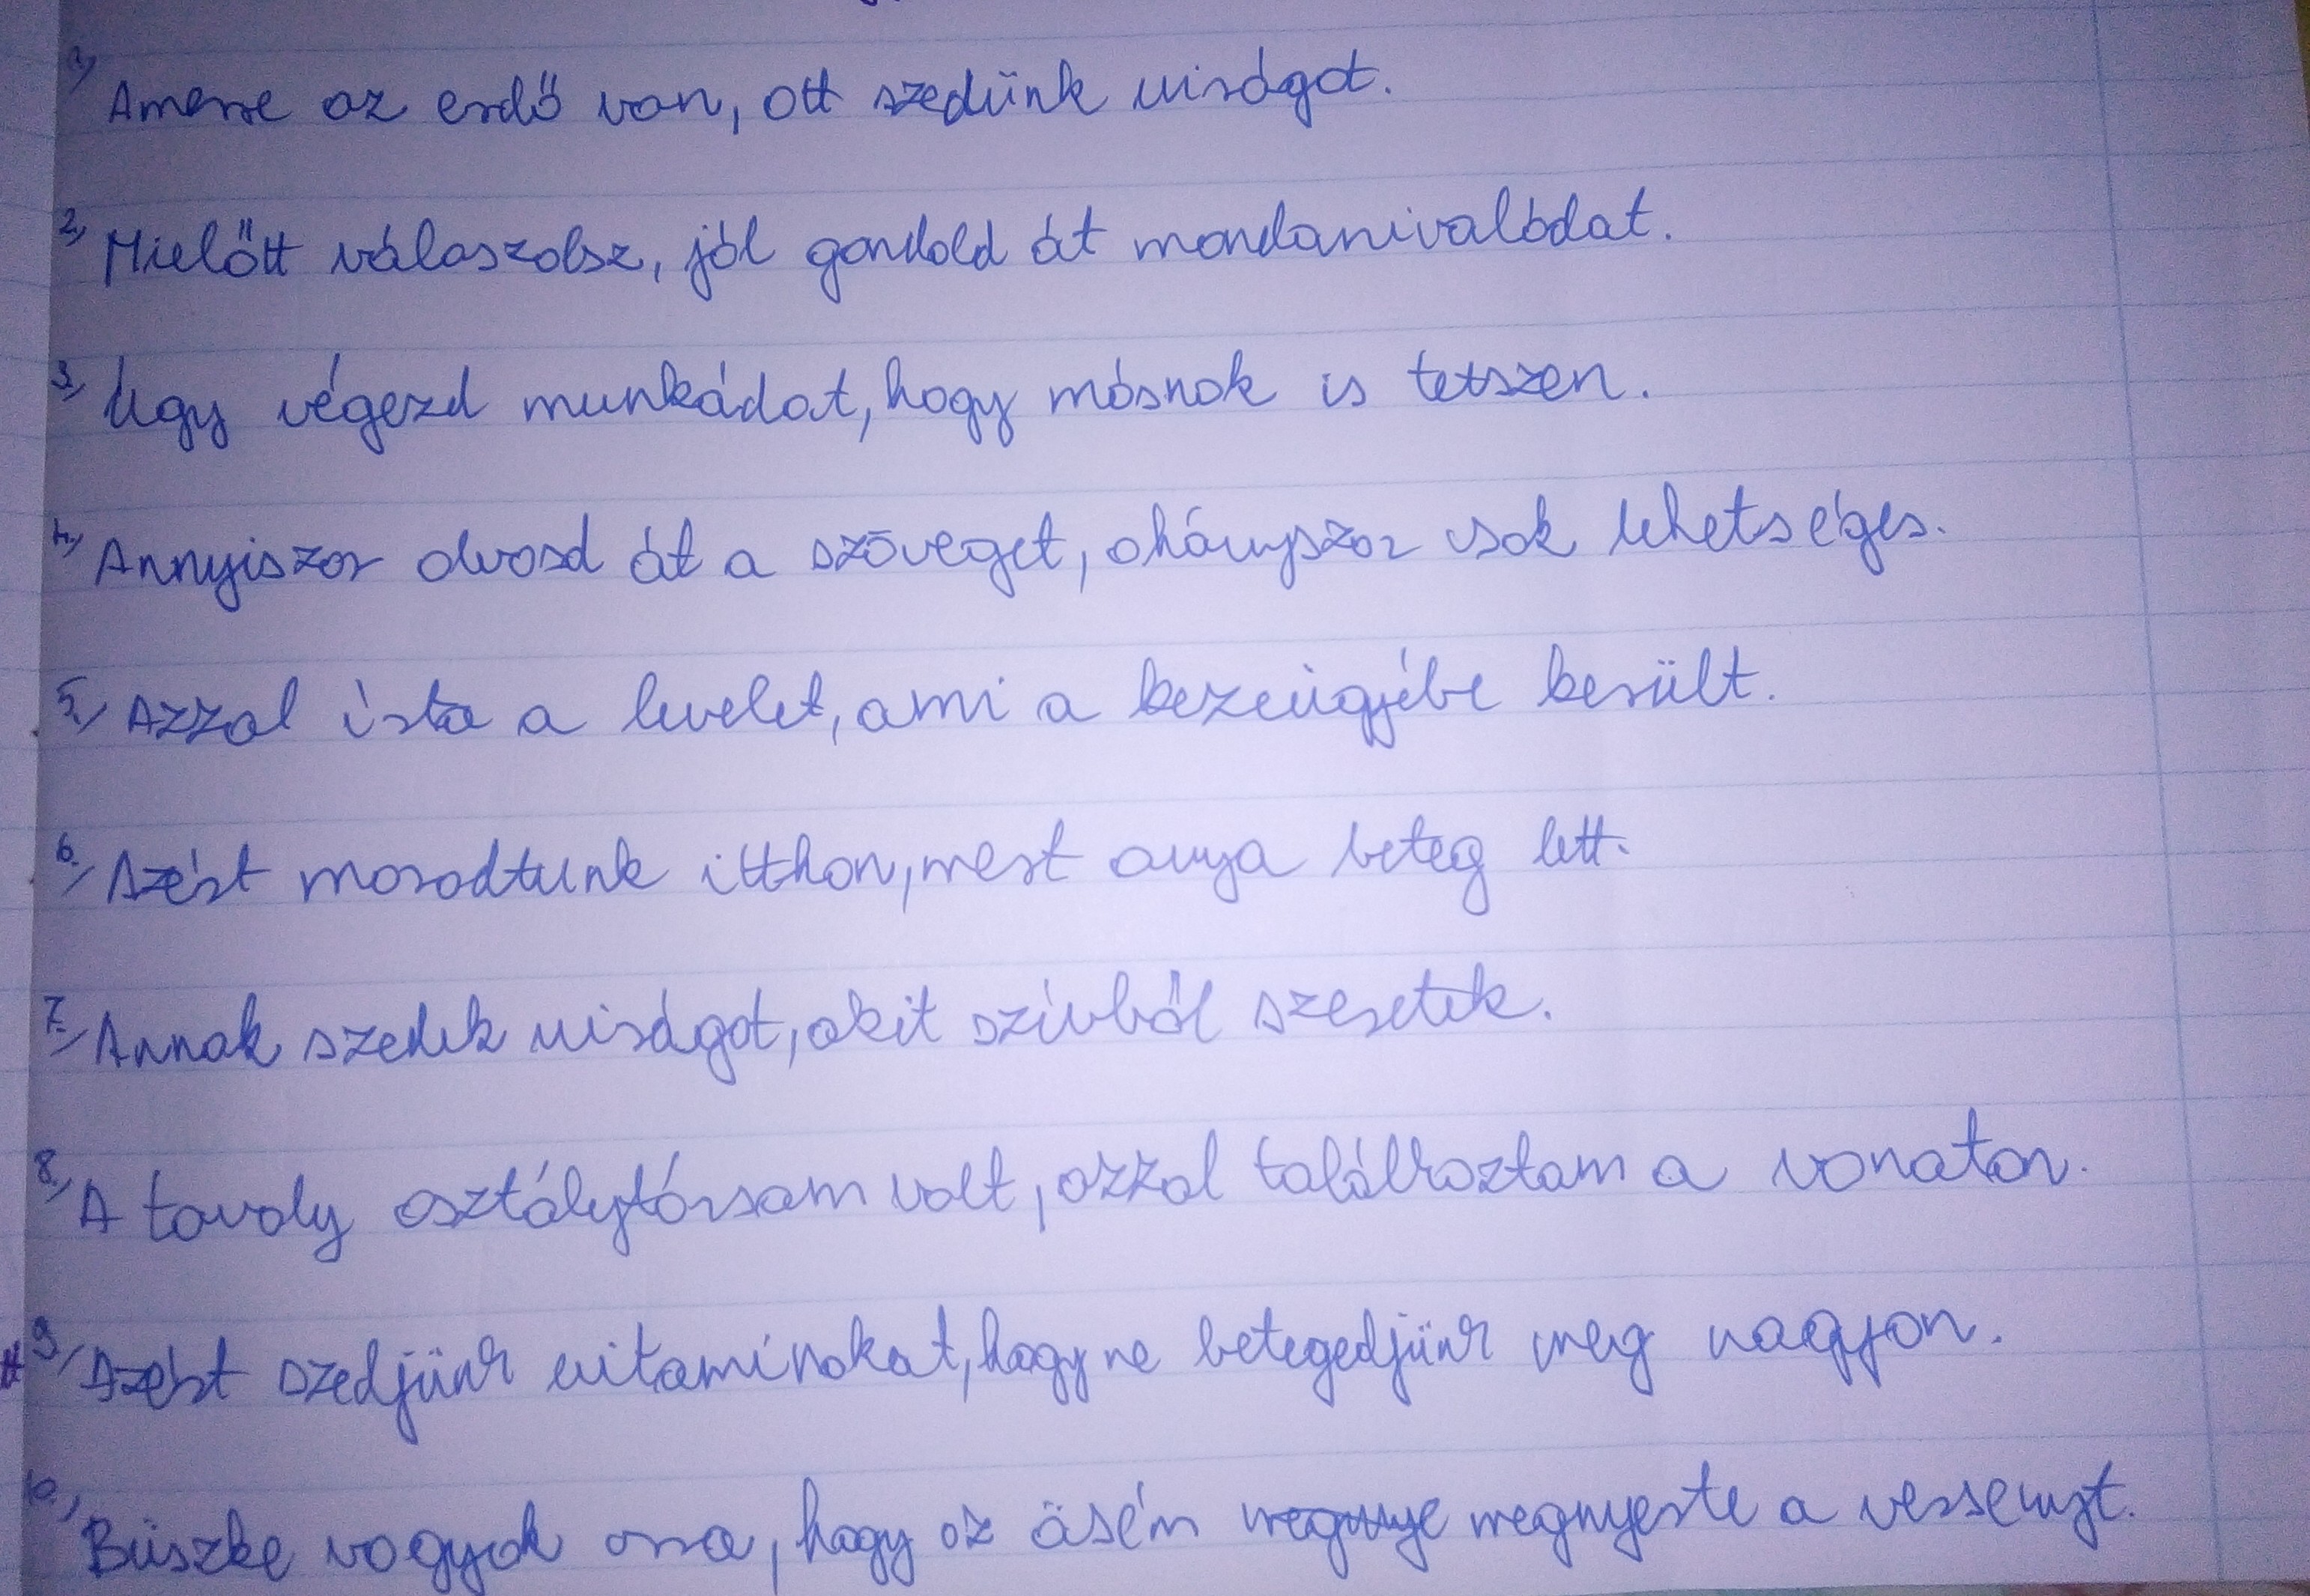 1, Amerre az erdő van, ott szedünk virágot.
2, Mielőtt válaszolsz, jól gondold át mondanivalódat.
3, Úgy végezd munkádat, hogy másnak is tetszen.
4, Annyiszor olvasd át a szöveget, ahányszor csak lehetséges.
5, Azzal írta a levelet, ami a kezeügyébe került.
6, Azért maradtunk itthon, mert anya beteg lett.
7, Annak szedek virágot, akit szívből szeretek.
8, A tavaly osztálytársam volt, azzal találkoztam a vonaton.
9, Azért szedjünk vitaminokat, hogy ne betegedjünk meg nagyon.
10, Büszke vagyok arra, hogy az öcsém megnye megnyerte a versenyt.